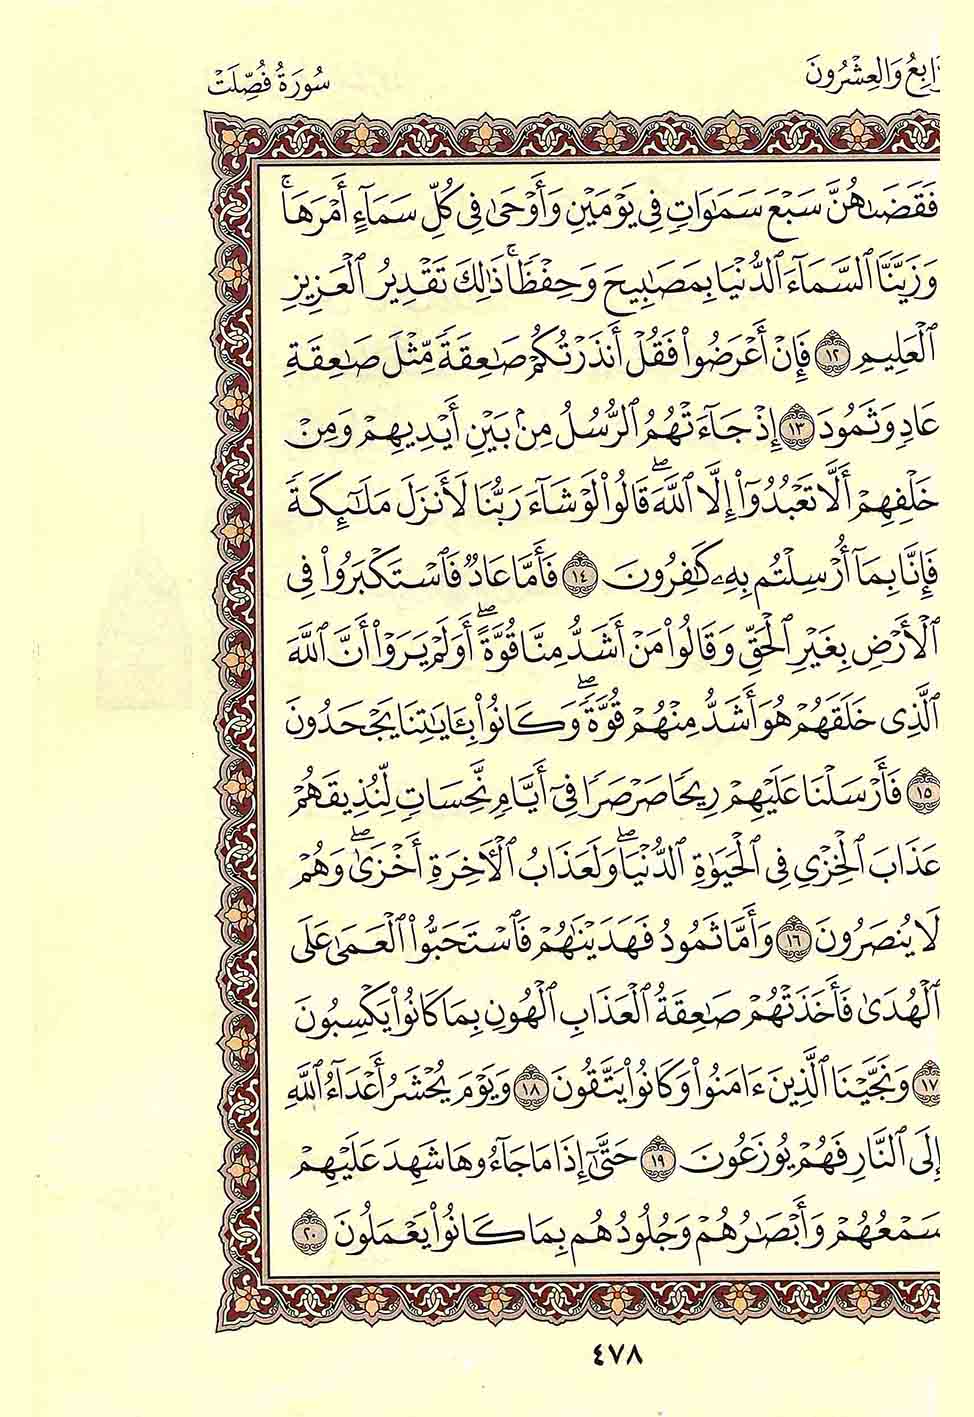 رَابِعُ وَالعِشْرُونَ
سُورَةُ فُصِّلَتْ
فَقَضَىٰهُنَّ سَبْعَ سَمَٰوَاتٍ فِي يَوْمَيْنِ وَأَوْحَىٰ فِي كُلِّ سَمَآءٍ أَمْرَهَاۚ
وَزَيَّنَّا ٱلسَّمَآءَ ٱلدُّنْيَا بِمَصَٰبِيحَ وَحِفْظًاۚ ذَٰلِكَ تَقْدِيرُ ٱلْعَزِيزِ
ٱلْعَلِيمِ ١٢ فَإِنْ أَعْرَضُوا۟ فَقُلْ أَنذَرْتُكُمْ صَٰعِقَةً مِّثْلَ صَٰعِقَةِ
عَادٍ وَثَمُودَ ١٣ إِذْ جَآءَتْهُمُ ٱلرُّسُلُ مِنۢ بَيْنِ أَيْدِيهِمْ وَمِنْ
خَلْفِهِمْ أَلَّا تَعْبُدُوٓا۟ إِلَّا ٱللَّهَۖ قَالُوا۟ لَوْ شَآءَ رَبُّنَا لَأَنزَلَ مَلَٰٓئِكَةً
فَإِنَّا بِمَآ أُرْسِلْتُم بِهِۦ كَٰفِرُونَ ١٤ فَأَمَّا عَادٌ فَٱسْتَكْبَرُوا۟ فِي
ٱلْأَرْضِ بِغَيْرِ ٱلْحَقِّ وَقَالُوا۟ مَنْ أَشَدُّ مِنَّا قُوَّةًۖ أَوَلَمْ يَرَوْا۟ أَنَّ ٱللَّهَ
ٱلَّذِي خَلَقَهُمْ هُوَ أَشَدُّ مِنْهُمْ قُوَّةًۖ وَكَانُوا۟ بِـَٔايَٰتِنَا يَجْحَدُونَ
١٥ فَأَرْسَلْنَا عَلَيْهِمْ رِيحًا صَرْصَرًا فِيٓ أَيَّامٍ نَّحِسَاتٍ لِّنُذِيقَهُمْ
عَذَابَ ٱلْخِزْيِ فِي ٱلْحَيَوٰةِ ٱلدُّنْيَاۖ وَلَعَذَابُ ٱلْأٓخِرَةِ أَخْزَىٰۖ وَهُمْ
لَا يُنصَرُونَ ١٦ وَأَمَّا ثَمُودُ فَهَدَيْنَٰهُمْ فَٱسْتَحَبُّوا۟ ٱلْعَمَىٰ عَلَى
ٱلْهُدَىٰ فَأَخَذَتْهُمْ صَٰعِقَةُ ٱلْعَذَابِ ٱلْهُونِ بِمَا كَانُوا۟ يَكْسِبُونَ
١٧ وَنَجَّيْنَا ٱلَّذِينَ ءَامَنُوا۟ وَكَانُوا۟ يَتَّقُونَ ١٨ وَيَوْمَ يُحْشَرُ أَعْدَآءُ ٱللَّهِ
إِلَى ٱلنَّارِ فَهُمْ يُوزَعُونَ ١٩ حَتَّىٰٓ إِذَا مَا جَآءُوهَا شَهِدَ عَلَيْهِمْ
سَمْعُهُمْ وَأَبْصَٰرُهُمْ وَجُلُودُهُم بِمَا كَانُوا۟ يَعْمَلُونَ ٢٠
٤٧٨